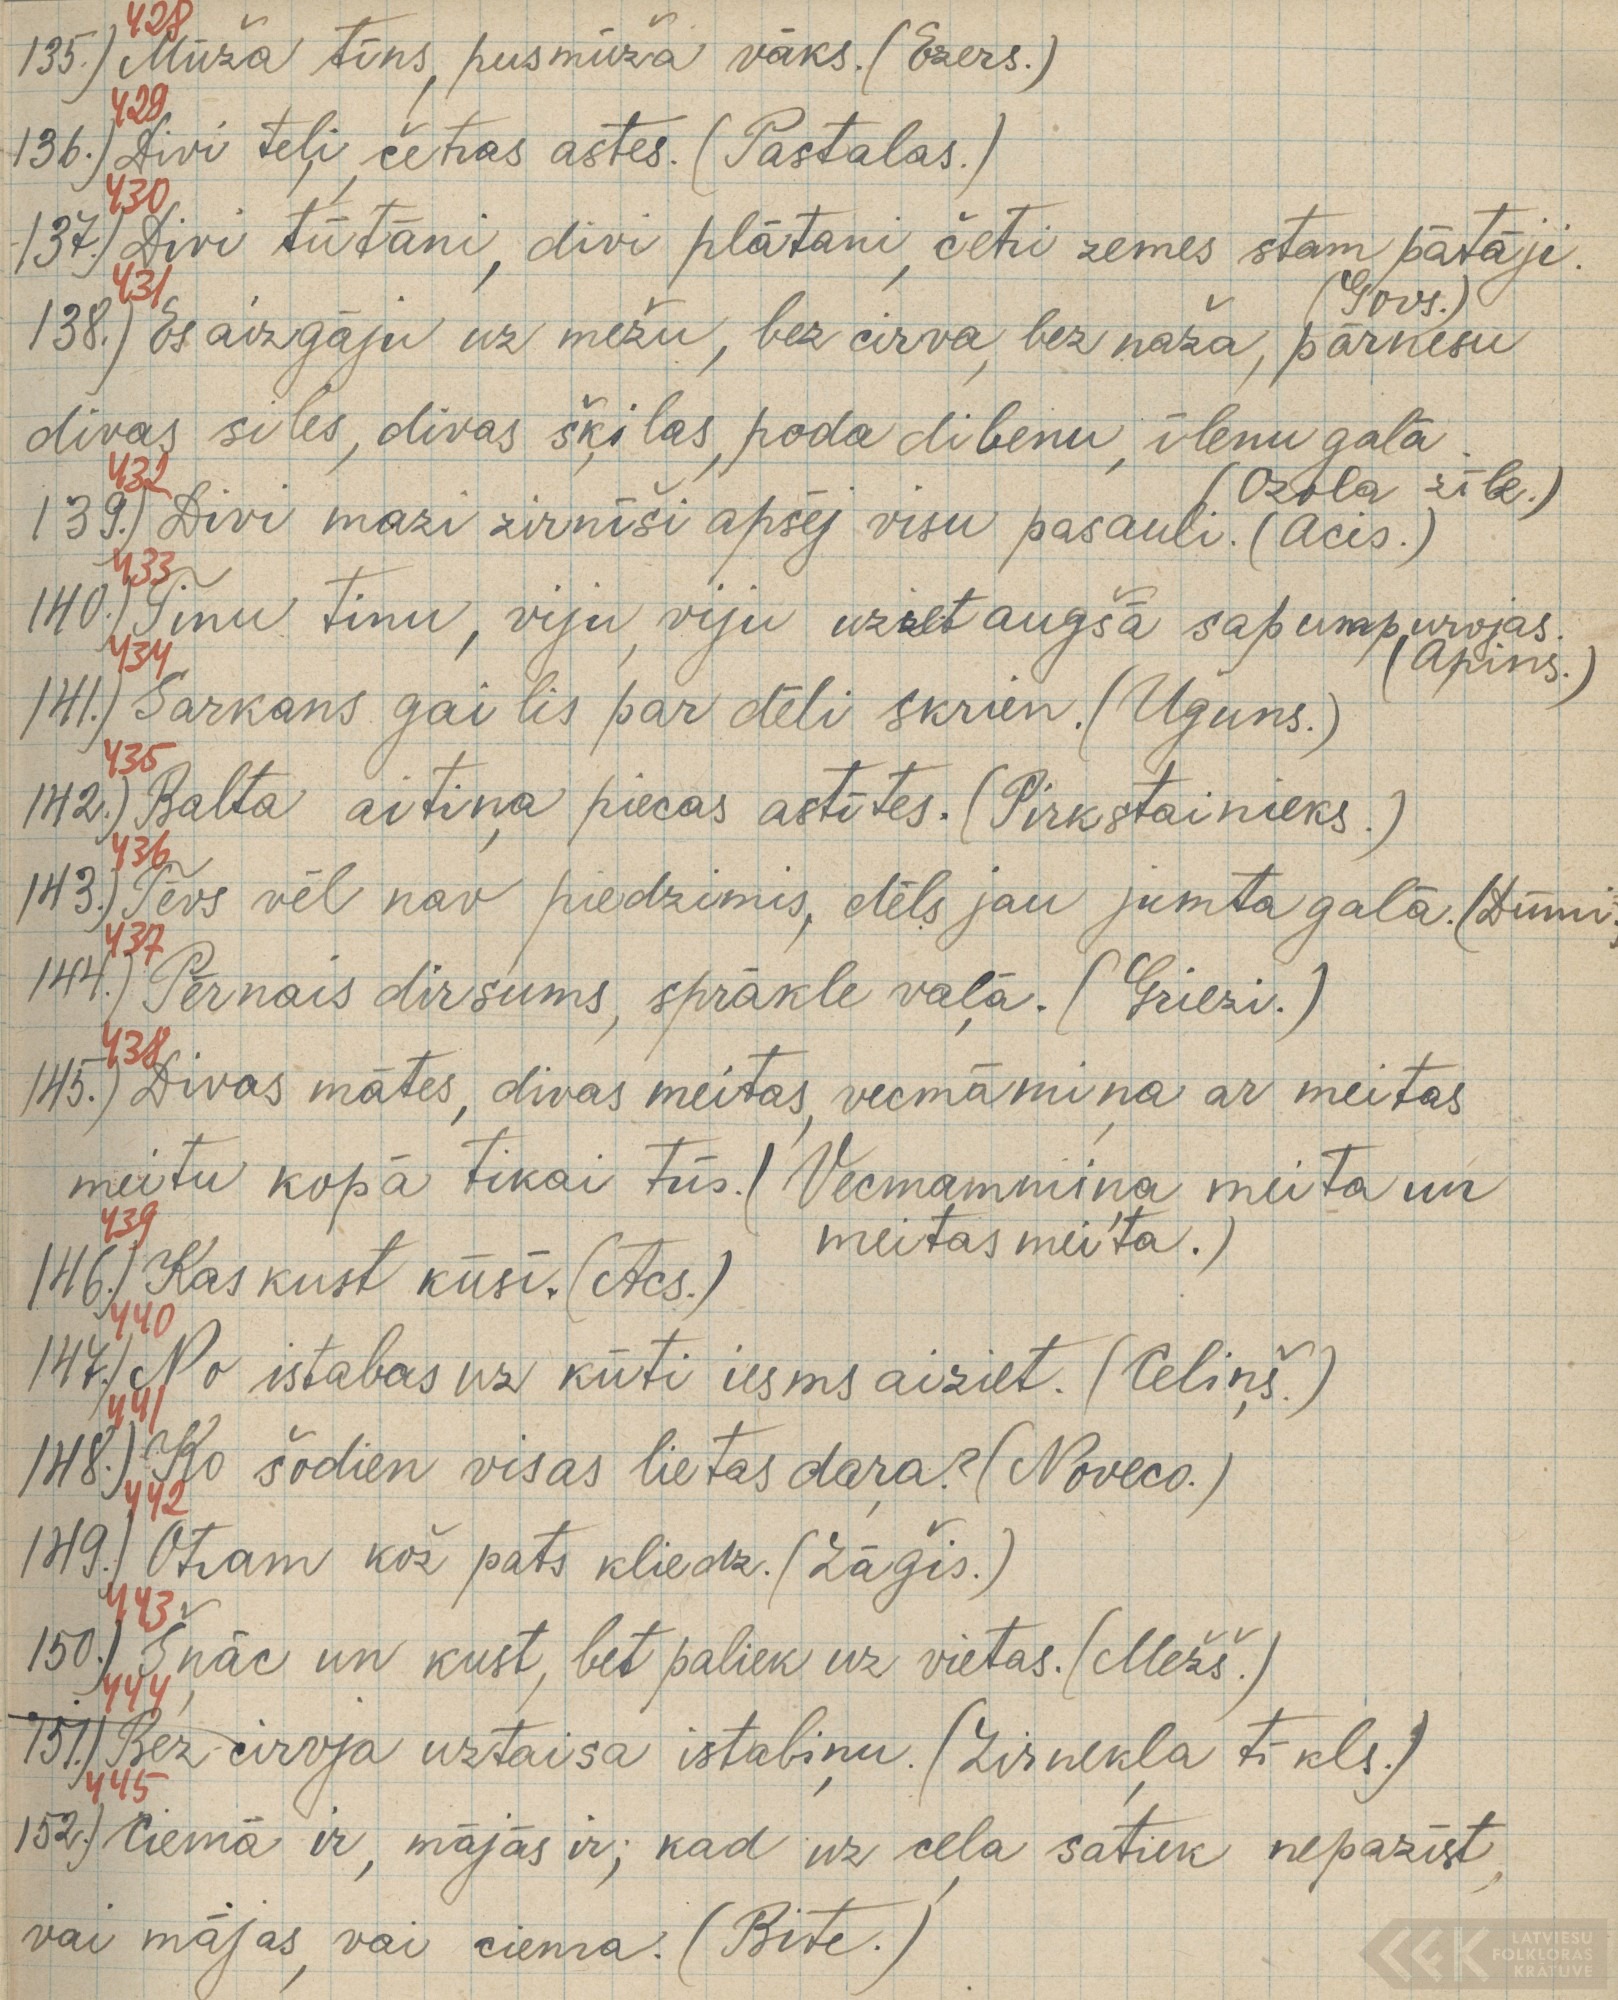 428
135.) Mūža tīns, pusmūža vāks. (Ezers.)
429
136.) Divi teļi, četras astes. (Pastalas.)
430
137.) Divi tūtāni, divi plātani, četri zemes stampātāji.
(Govs.)
431
138.) Es aizgāju uz mežu, bez cirva, bez naža, pārnesu
divas siles, divas šķilas, poda dibenu, īlenu galā.
(Ozola zīle.)
432
139.) Divi mazi zirnīši apsēj visu pasauli. (Acis.)
433
140.) Tinu tinu, viju, viju uziet augšā sapumpurojas.
(Apins.)
434
141.) Sarkans gailis par dēli skrien. (Uguns.)
435
142.) Balta aitiņa piecas astītes. (Pirkstainieks.)
436
143.) Tēvs vēl nav piedzimis, dēls jau jumta galā. (Dūmi.)
437
144.) Pērnais dirsums, sprākle vaļā. (Griezi.)
438
145.) Divas mātes, divas meitas, vecmāmiņa ar meitas
meitu kopā tikai trīs. (Vecmammiņa meita un
meitas meita.)
439
146.) Kas kust kūsī. (Acs.)
440
147.) No istabas uz kūti iesms aiziet. (Celiņš.)
441
148.) Ko šodien visas lietas dara? (Noveco.)
442
149.) Otram kož pats kliedz. (Zāģis.)
443
150.) Šņāc un kust, bet paliek uz vietas. (Mežš.)
444
151.) Bez cirvja uztaisa istabiņu. (Zirnekļa tīkls.)
445
152.) Ciemā ir, mājās ir; kad uz ceļa satiek nepazīst,
vai mājas, vai ciema. (Bite.)
LATVIEŠU
FOLKLORAS
KRĀTUVE